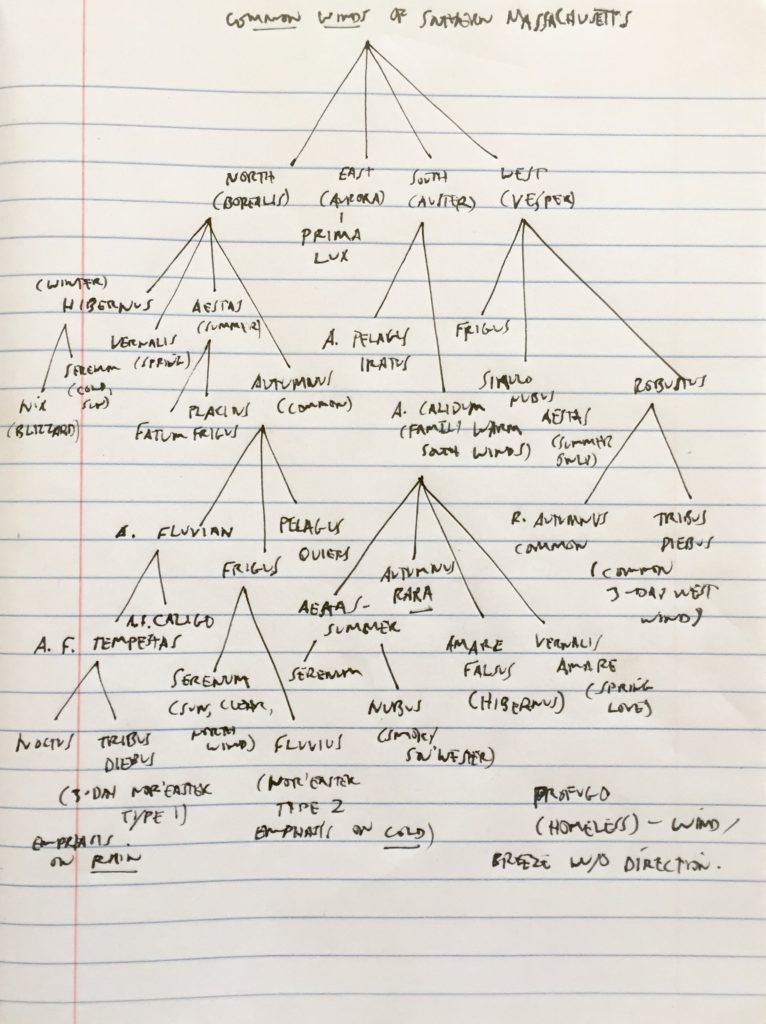 COMMON WINDS OF SOUTHERN MASSACHUSETTS
NORTH
(BOREALIS)
EAST
(AURORA)
PRIMA
LUX
SOUTH
(AUSTER)
WEST
(VESPER)
(WINTER)
HIBERNUS
VERNALIS
(SPRING)
AESTAS
(SUMMER)
AUTUMNUS
(COMMON)
NIX
(BLIZZARD)
SERENUM
(COLD,
SUN)
FATUM FRIGUS
PLACINS
A. PELAGUS
IRATUS
A. CALIDUM
(FAMILY WARM
SOUTH WINDS)
FRIGUS
NUBUS
AESTAS
(SUMMER
ONLY)
ROBUSTUS
R. AUTUMNUS
COMMON
TRIBUS
DIEBUS
(COMMON
3-DAY WEST
WIND)
A. FLUVIAN
FRIGUS
PELAGUS
QUIERS
A. F. TEMPESTAS
A.F. CALIGO
NOCTUS
TRIBUS
DIEBUS
(3-DAY NOR'EASTER
TYPE 1)
EMPHASIS
ON RAIN
SERENUM
(SUN, CLEAR,
NORTH
WIND)
FLUVIUS
(NOR'EASTER
TYPE 2
EMPHASIS ON COLD)
AESTAS-
SUMMER
AUTUMNUS
RARA
AMARE
FALSUS
(HIBERNUS)
VERNALIS
AMARE
(SPRING
LOVE)
SERENUM
NUBUS
(SMOKY
SOU'WESTER)
PROFUGO
(HOMELESS) - WIND/
BREEZE W/O DIRECTION.